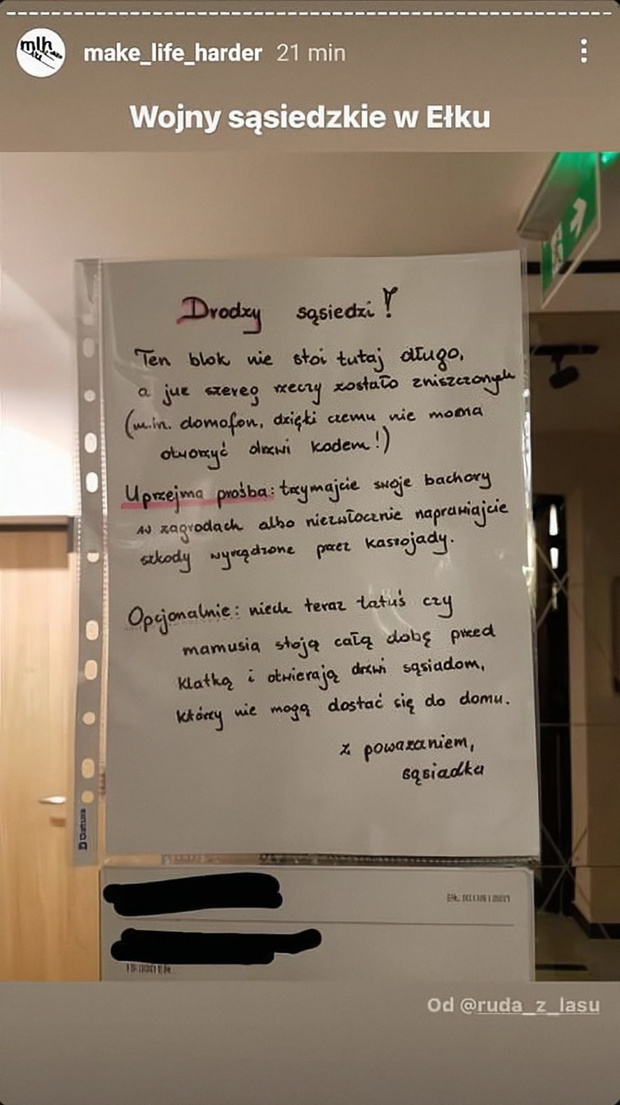 mlh
make_life_harder 21 min
Wojny sąsiedzkie w Ełku
Drodzy sąsiedzi!
Ten blok nie stoi tutaj długo,
a już szereg rzeczy zostało zniszczonych
(m.in. domofon, dzięki czemu nie można
otworzyć drzwi kodem!)
Uprzejma prośba: trzymajcie swoje bachory
w zagrodach albo niezwłocznie naprawiajcie
szkody wyrządzone przez kaszojady.
Opcjonalnie: niech teraz tatuś czy
mamusia stoją całą dobę przed
klatką i otwierają drzwi sąsiadom,
którzy nie mogą dostać się do domu.
z poważaniem,
sąsiadka
Donau
Od @ruda_z_lasu